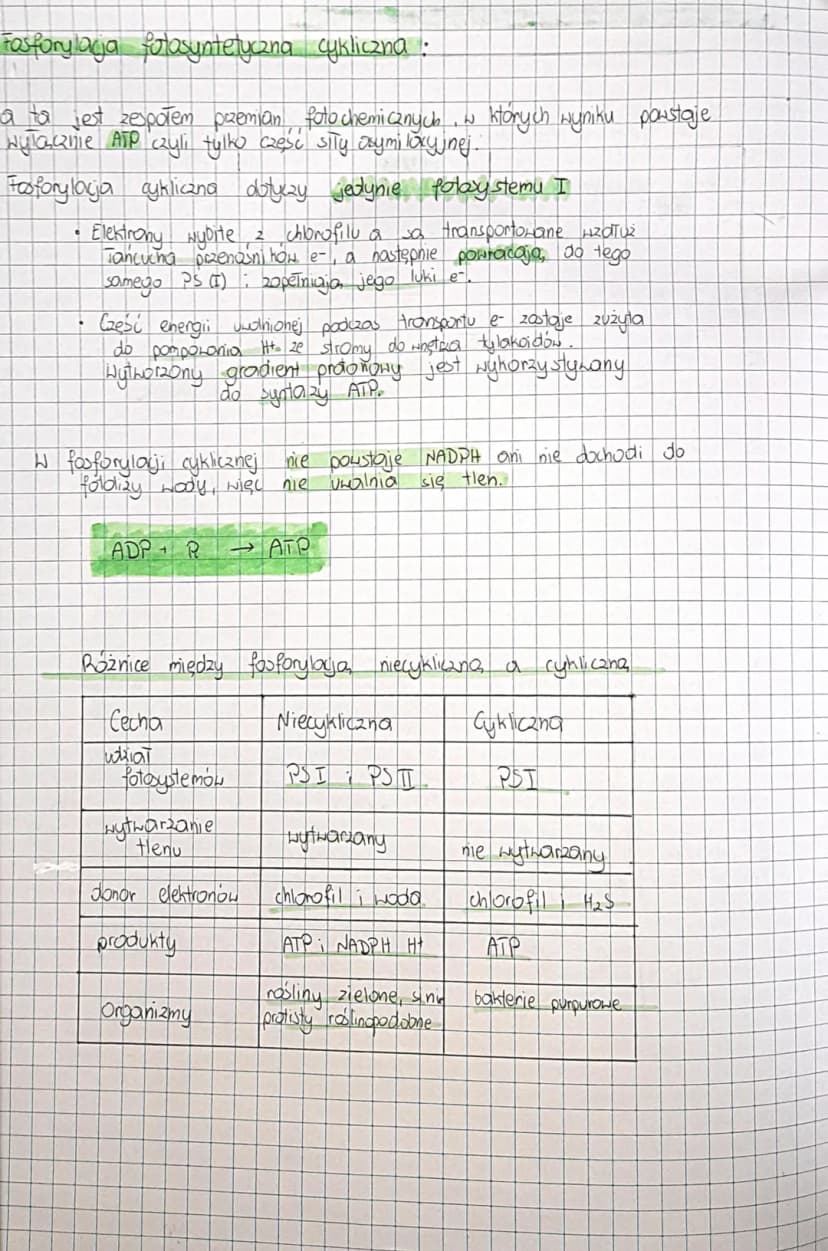 Fosforylacja fotosyntetyczna cykliczna :
a ta jest zespołem przemian fotochemicznych, w których wyniku powstaje
wyłącznie ATP czyli tylko część siły asymilacyjnej.
Fosforylacja cykliczna dotyczy jedynie fotosystemu I
• Elektrony wybite z chlorofilu a są transportowane wzdłuż
łańcucha przenośników e-, a następnie powracają do tego
samego PS (I) i zapełniają jego luki e-.
• Część energii uwolnionej podczas transportu e- zostaje zużyta
do pompowania H+ ze stromy do wnętrza tylakoidów.
Wytworzony gradient protonowy jest wykorzystywany
do syntazy ATP.
W fosforylacji cyklicznej nie powstaje NADPH ani nie dochodi do
fotolizy wody, więc nie uwalnia się tlen.
ADP + Pi → ATP
Różnice między fosforylacją niecykliczną a cykliczną
Cecha Niecykliczna Cykliczna
udział
fotosystemów PS I i PS II PS I
wytwarzanie
tlenu wytwarzany nie wytwarzany
donor elektronów chlorofil i woda chlorofil i H₂S
produkty ATP i NADPH H+ ATP
Organizmy rośliny zielone, sinice bakterie purpurowe
protisty roślinopodobne